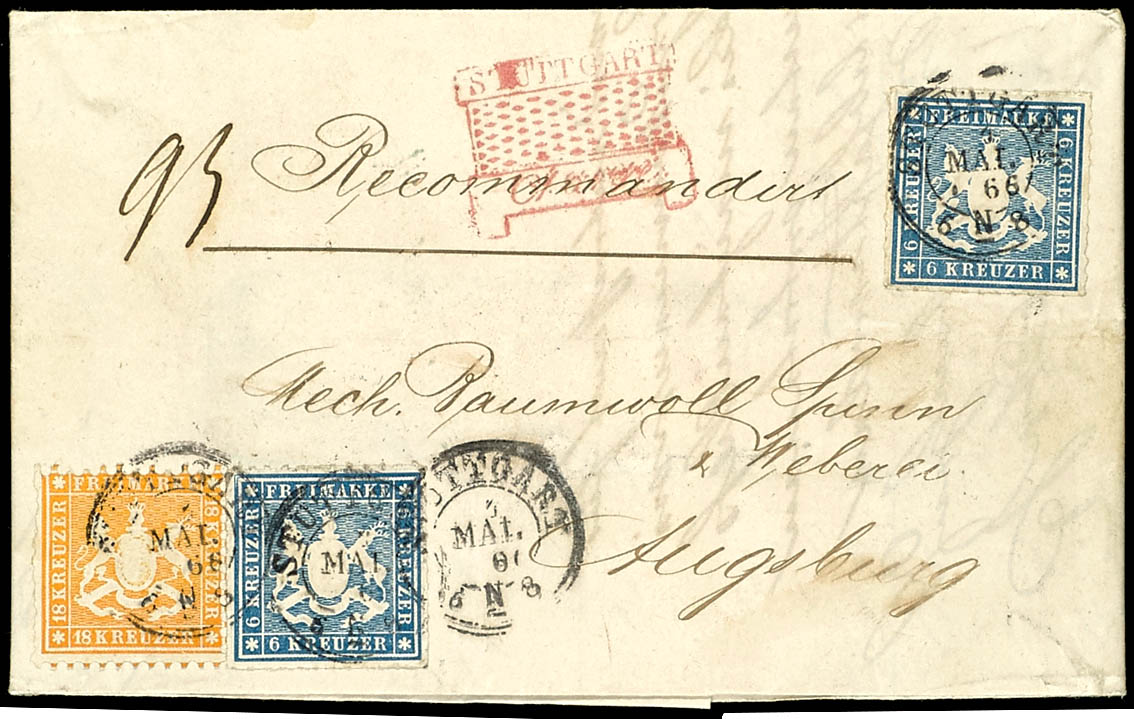 STUTTGART
Chargé
93 Recommandirt
Mech. Baumwoll Spinn
& Weberei
Augsburg
FREIMARKE
6 KREUZER
6 KREUZER
6 KREUZER
MAI.
66
6 N 8
FREIMARKE
18 KREUZER
18 KREUZER
18 KREUZER
MAI.
68
6 N 8
FREIMARKE
6 KREUZER
6 KREUZER
6 KREUZER
MAI
STUTTGART
3
MAI.
6 N 8